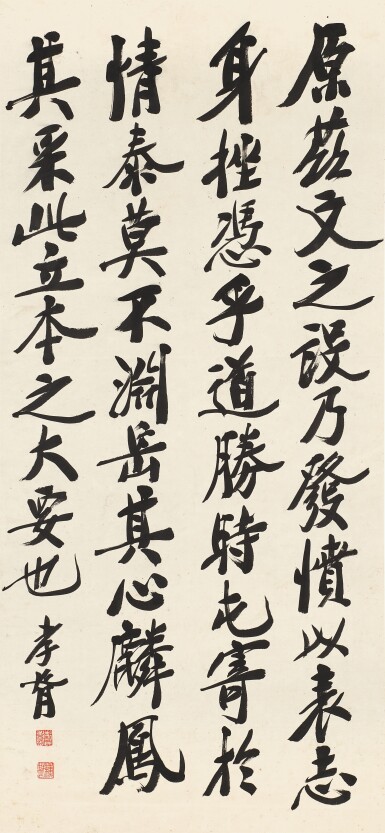 原茲文之設乃發憤以表志
身挫憑乎道勝時屯寄於
情泰莫不淵岳其心麟鳳
其采此立本之大要也
孝胥